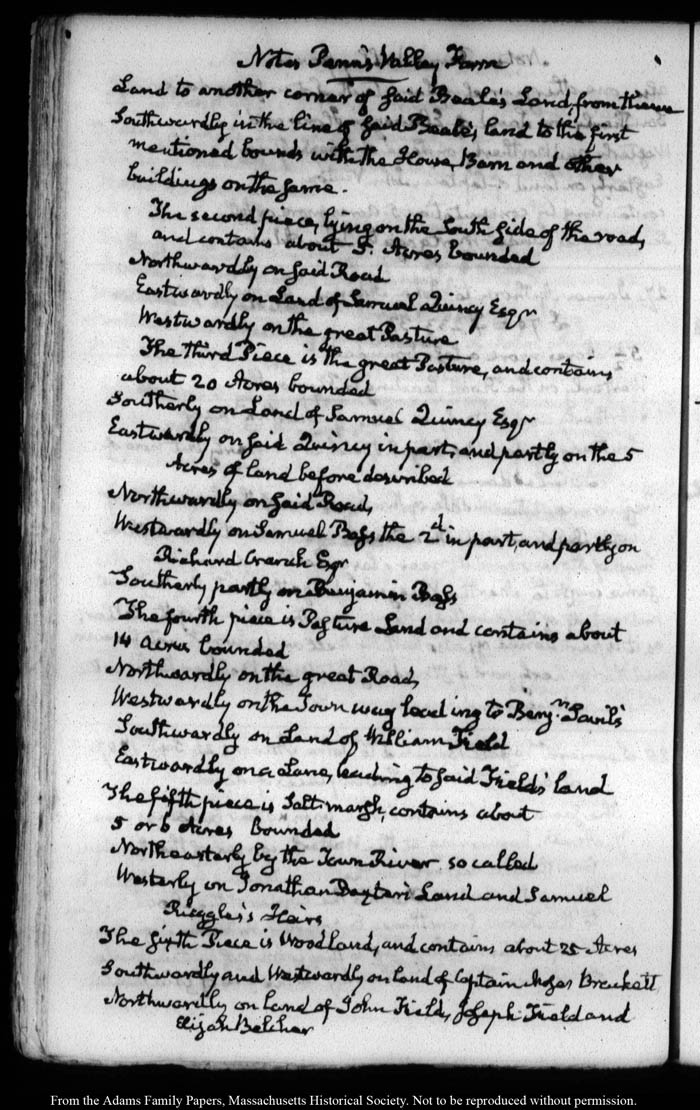 Notes Penn's Valley Farm
Land to another corner of said Beale's Land, from thence
Southwardly in the line of said Beale's land to the first
mentioned bounds with the House, Barn and other
buildings on the same.
The second piece, lying on the South side of the road,
and contains about 5. Acres bounded
Northwardly on said Road
Eastwardly on Land of Samuel Quincy Esqr
Westwardly on the great Pasture
The third Piece is the great Pasture, and contains
about 20 Acres bounded
Southerly on Land of Samuel Quincy Esqr
Eastwardly on said Quincy in part, and partly on the 5
Acres of land before described
Northwardly on said Road,
Westwardly on Samuel Bass the 2d in part, and partly on
Richard Cranch Esqr
Southerly partly on Benjamin Bass
The fourth piece is Pasture Land and contains about
14 Acres bounded
Northwardly on the great Road,
Westwardly on the Town way leading to Benjn Savil's
Southwardly on Land of William Field
Eastwardly on a Lane, leading to said Field's land
The fifth piece is Salt marsh, contains about
5 or 6 Acres bounded
Northeasterly by the Town River so called
Westerly on Jonathan Land and Samuel
Heirs
The sixth Piece is Woodland, and contains about 25 Acres
Southwardly and Westwardly on land of Captain Moses Brackett
Northwardly on land of John Field, Joseph Field and
Elijah Belcher
From the Adams Family Papers, Massachusetts Historical Society. Not to be reproduced without permission.